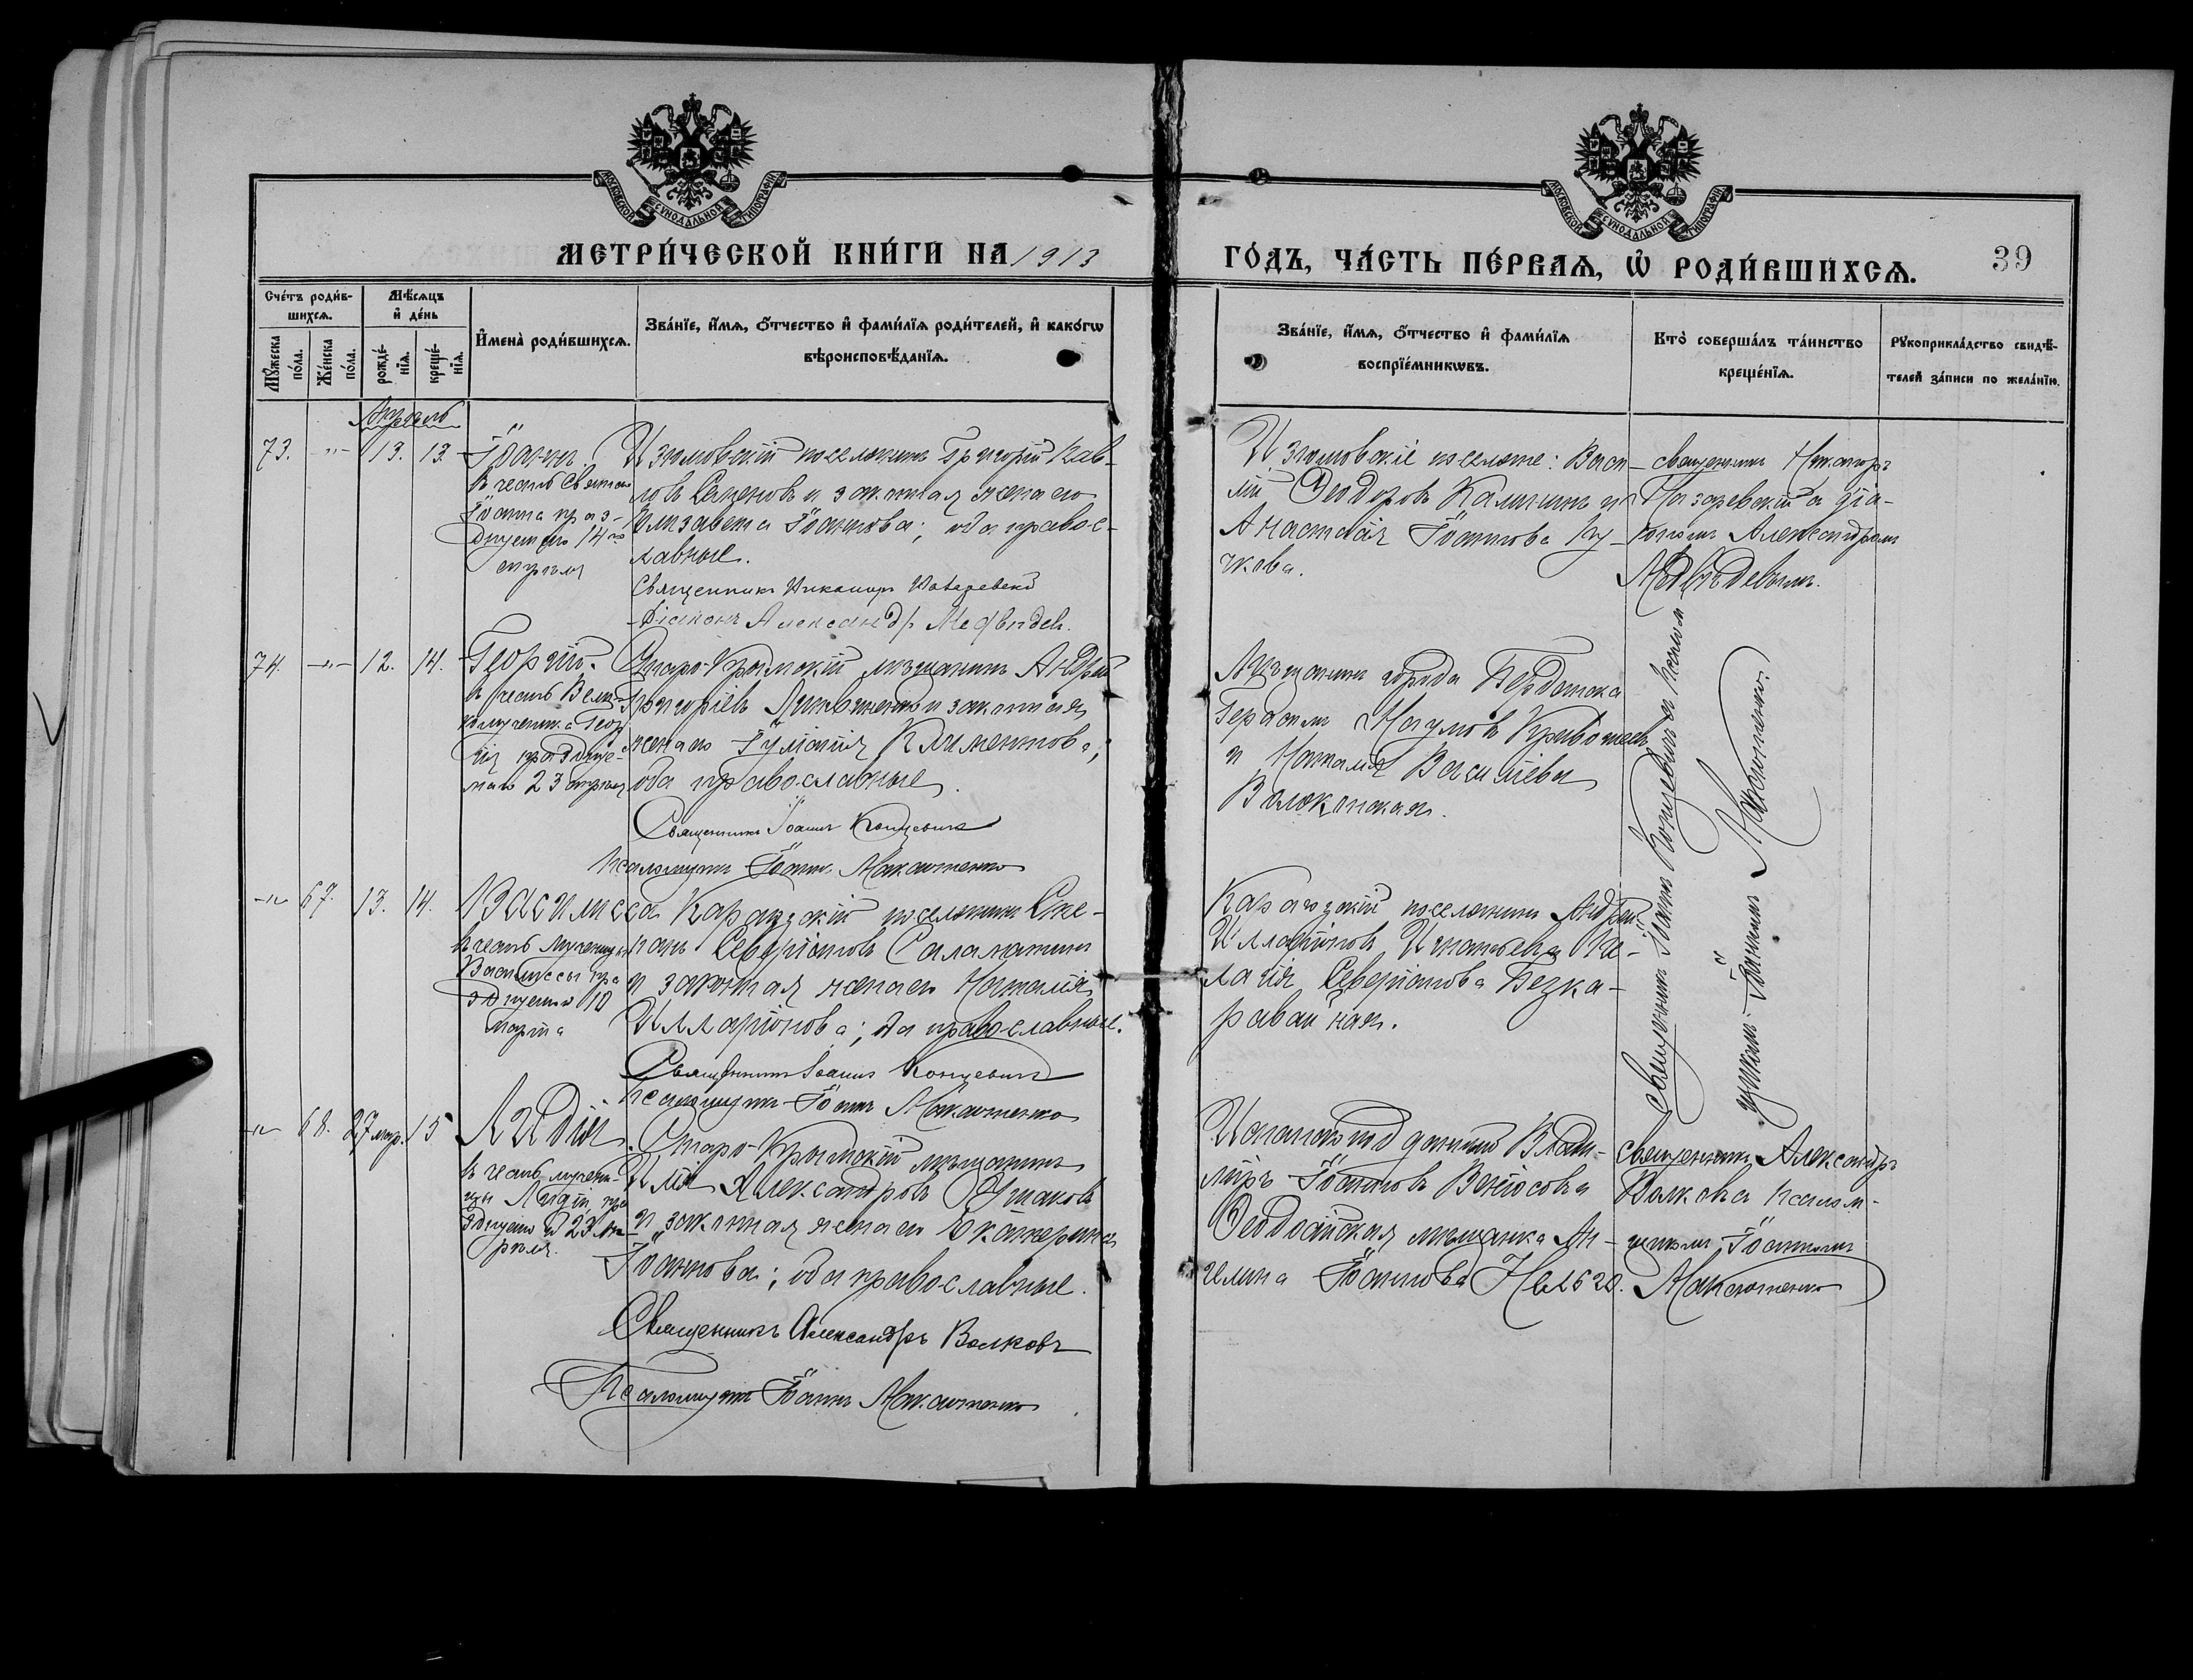 МОСКОВСКОЙ СѴНОДАЛЬНОЙ ТИПОГРАФІИ
МОСКОВСКОЙ СѴНОДАЛЬНОЙ ТИПОГРАФІИ
МЕТРИ́ЧЕСКОЙ КНИ́ГИ НА 1913
ГО́ДЪ, ЧА́СТЬ ПЕ́РВАѦ, Ѡ҆ РОДИ́ВШИХСѦ.
39
Сче́тъ роди́в-
шихсѧ.
Мꙋ́жеска по́ла.
Же́нска по́ла.
Мѣ́сѧцъ и҆ де́нь
рожде́-
нїѧ.
креще́-
нїѧ.
И҆мена̀ роди́вшихсѧ.
Зва́нїе, и҆́мѧ, ѻ҆́тчество и҆ фами́лїѧ роди́телей, и҆ како́гѡ
вѣроисповѣ́данїѧ.
Зва́нїе, и҆́мѧ, ѻ҆́тчество и҆ фами́лїѧ
воспрїе́мникѡвъ.
Кто̀ соверша́лъ та́инство
креще́нїѧ.
Рꙋкоприкла́дство свидѣ́-
телей за́писи по жела́нїю.
Апрѣль
73. -"- 13. 13.
Іоаннъ.
въ честь святаго
Іоанна праз-
днуемаго 14го
апрѣля
Изюмовскій поселянинъ Григорій Пав-
ловъ Семеновъ и законная жена его
Елизавета Іоаннова; оба правос-
лавные.
Священникъ Никаноръ Назаревскій
Діаконъ Александръ Медвѣдевъ.
Изюмовскіе поселяне: Васи-
лій Ѳеодоровъ Калининъ и
Анастасія Іоаннова Ку-
чкова.
священникъ Никаноръ
Назаревскій съ діа-
кономъ Александромъ
Медвѣдевымъ.
74. -"- 12. 14.
Георгій.
въ честь Вели-
комученика Геор-
гія праздную-
маго 23 апрѣля
Старо-Крымскій мѣщанинъ Андрей
Григоріевъ и законная
жена его Іуліанія Климентова;
оба православные.
Священникъ Іоаннъ Концевичъ
Псаломщикъ Іоаннъ Макаютенко
Мѣщанинъ города Бердянска
Наумовъ
и Наталія Васильева
Священникъ Іоаннъ Концевичъ съ псалом-
щикомъ Іоанномъ Макаютенко.
-"- 67. 13. 14.
Василисса
въ честь мученицы
Василиссы пра-
зднуемой 10
марта
Карагозскій поселянинъ Сте-
фанъ Северіановъ Саламатинъ
и законная жена его Наталія
Илларіонова; оба православные.
Священникъ Іоаннъ Концевичъ
Псаломщикъ Іоаннъ Макаютенко
Карагозскій поселянинъ Андрей
Илларіоновъ Игнатьевъ и Пе-
лагія Северіанова Безка-
равайная.
-"- 68. 27 мар. 15
Лидія
въ честь мучени-
цы Лидіи, пра-
зднуемой 23 ма-
Старо-Крымскій мѣщанинъ
Илія Александровъ Ушаковъ
и законная жена его Екатерина
Іоаннова; оба православные.
Священникъ Александръ Волковъ
Псаломщикъ Іоаннъ Макаютенко
подданный Влади-
міръ Іоанновъ
Ѳеодосійская мѣщанка Ан-
гелина Іоаннова
священникъ Александръ
Волковъ съ псалом-
щикомъ Іоанномъ
Макаютенко